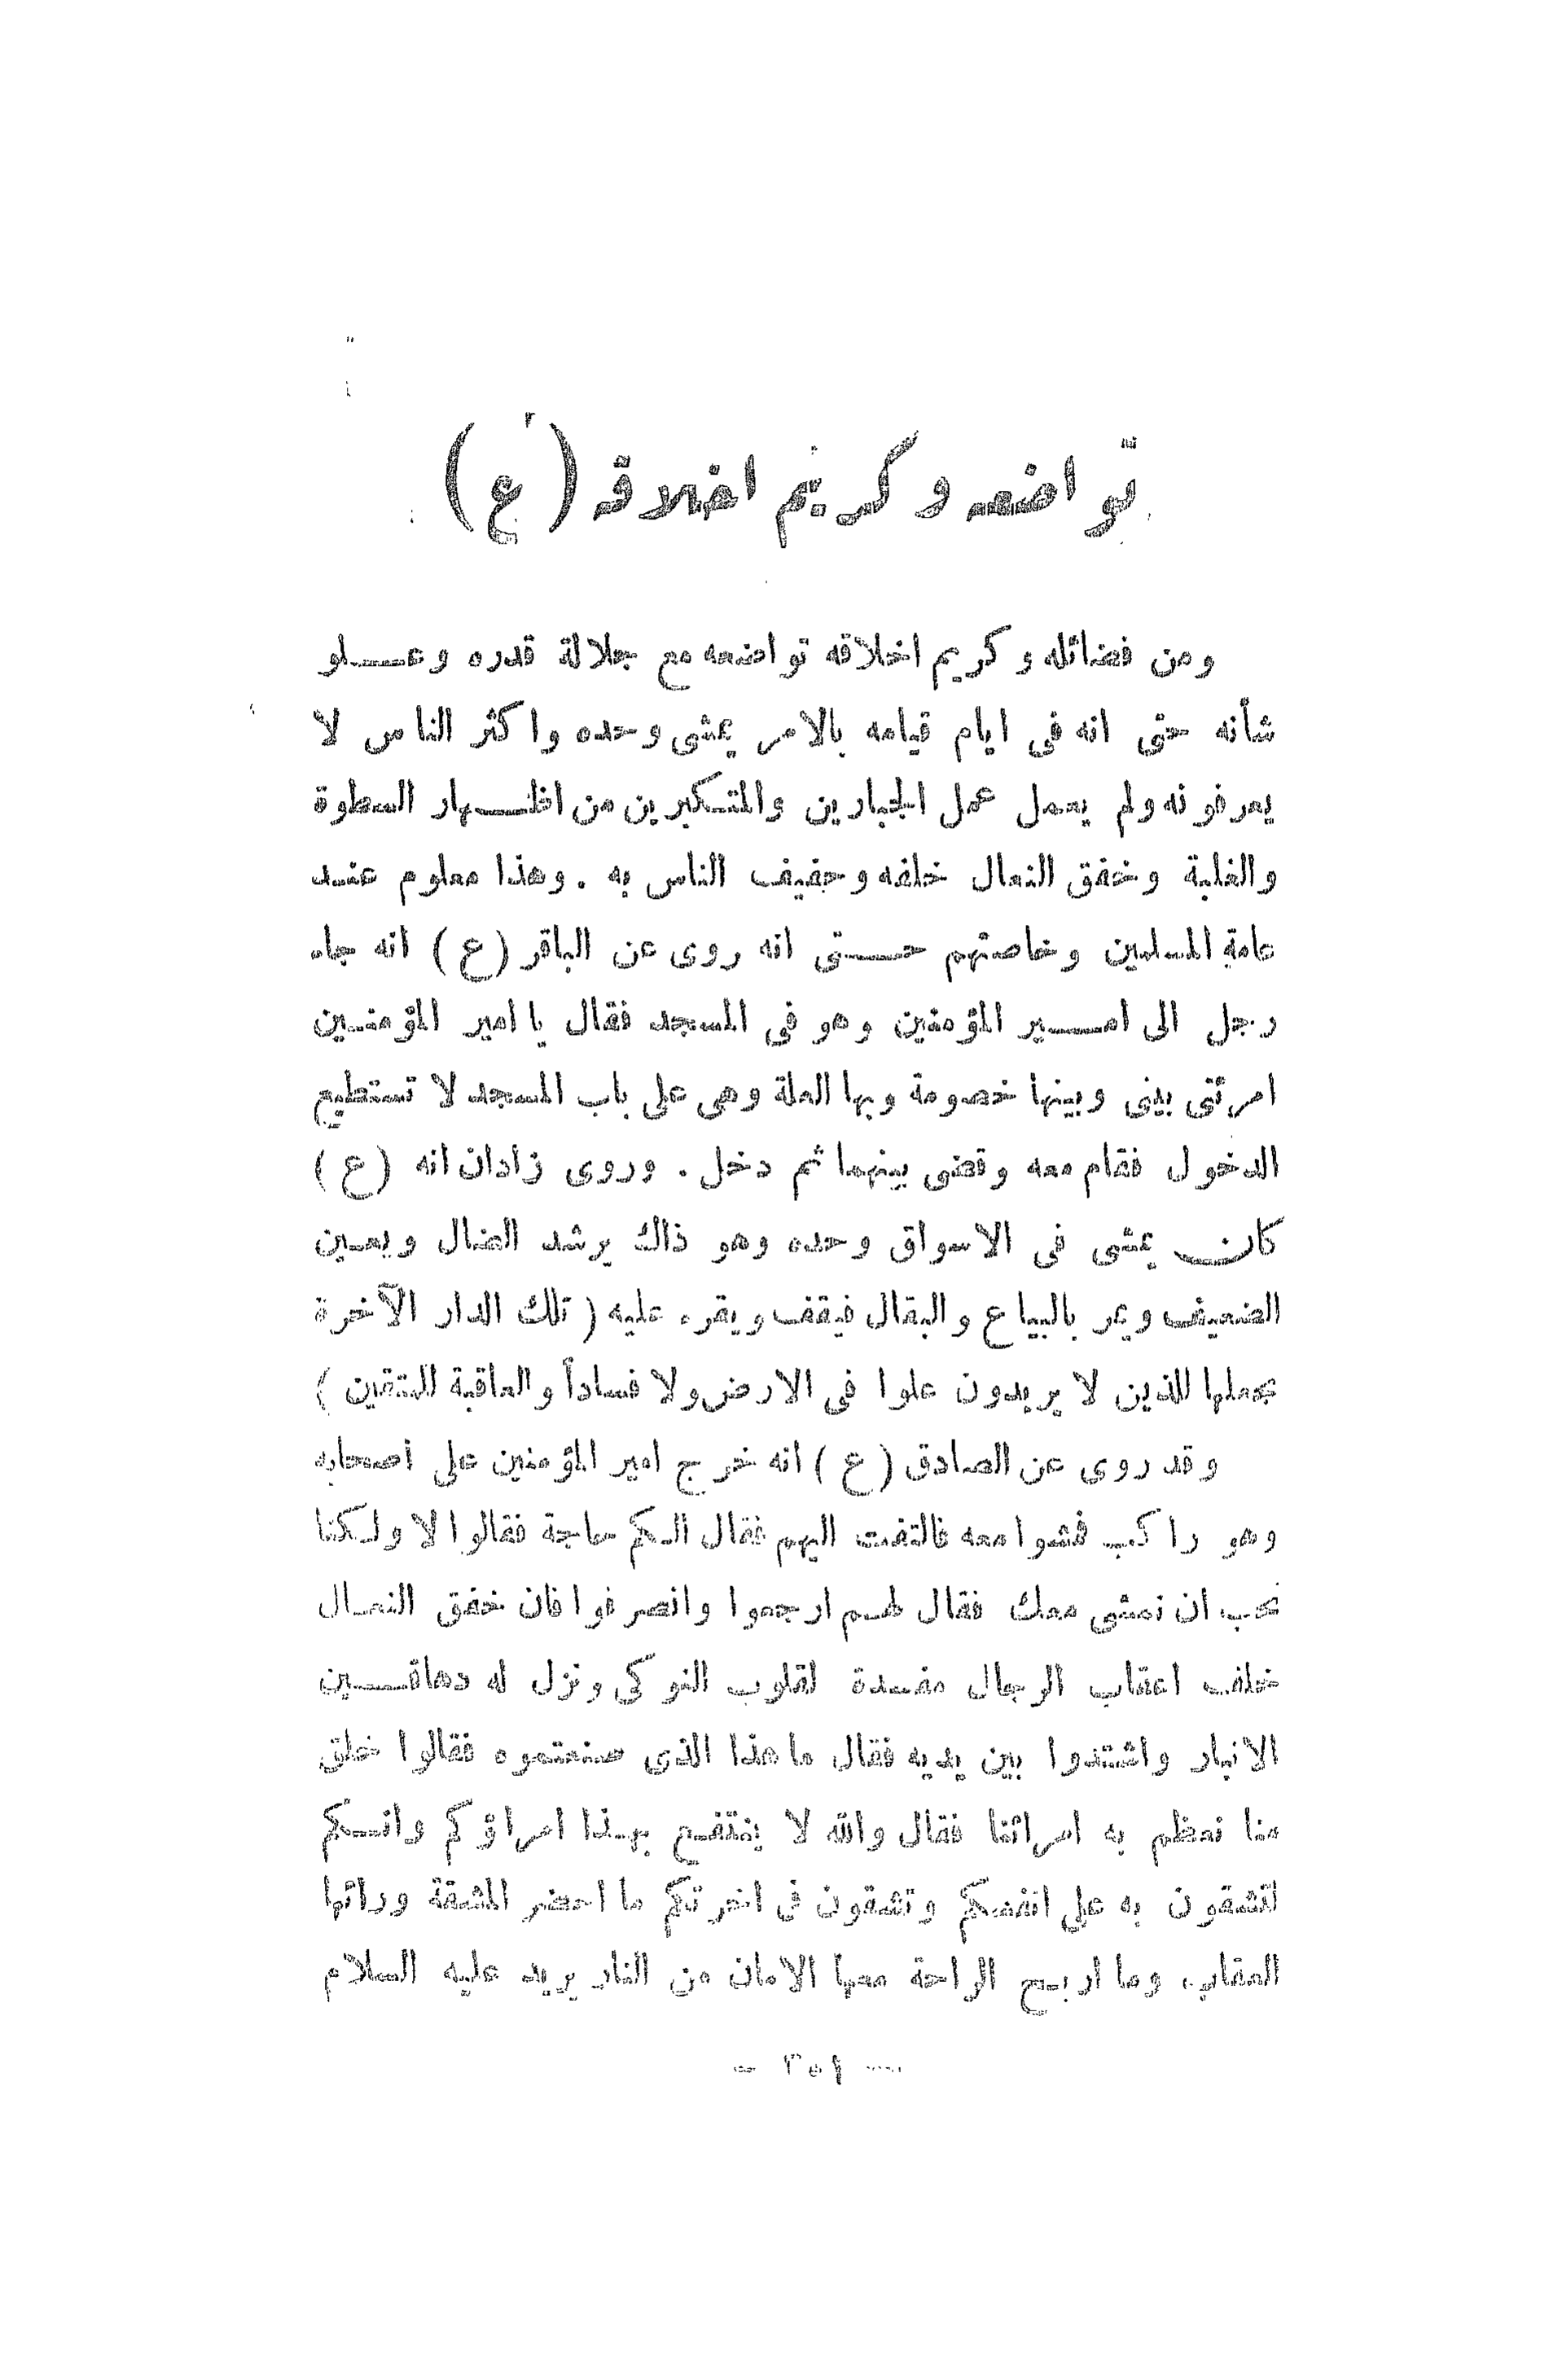 تواضعه وكريم اخلاقه (ع)
ومن فضائله وكريم اخلاقه تواضعه مع جلالة قدره وعـــلو
شأنه حتى انه فى ايام قيامه بالامر يمشى وحده واكثر الناس لا
يعرفونه ولم يعمل عمل الجبارين والمتكبرين من اظـهار السطوة
والغلبة وخفق النعال خلفه وحفيف الناس به . وهذا معلوم عند
عامة المسلمين وخاصتهم حـتى انه روى عن الباقر (ع) انه جاء
رجل الى امـــير المؤمنين وهو فى المسجد فقال يا امير المؤمنـين
امرئتى بينى وبينها خصومة وبها العلة وهى على باب المسجد لا تستطيع
الدخول فقام معه وقضى بينهما ثم دخل . وروى زادان انه (ع)
كان يمشى فى الاسواق وحده وهو ذاك يرشد الضال ويعـين
الضعيف ويمر بالبياع والبقال فيقف ويقرء عليه ( تلك الدار الآخرة
نجعلها للذين لا يريدون علوا فى الارض ولا فساداً والعاقبة للمتقين )
وقد روى عن الصادق (ع) انه خرج امير المؤمنين على اصحابه
وهو راكب فمشوا معه فالتفت اليهم فقال الـكم حاجة فقالوا لا ولـكنا
نحب ان نمشى معك فقال لهـم ارجعوا وانصرفوا فان خفق النعـال
خلف اعقاب الرجال مفسدة لقلوب النوكى ونزل له دهاقـــين
الانبار واشتدوا بين يديه فقال ما هذا الذى صنعتموه فقالوا خلق
منا نعظم به امرائنا فقال والله لا ينتفـع بهـذا امراؤكم وانـــكم
لتشقون به على انفسكم وتشقون فى اخرتكم ما احضر المشقة ورائها
العقاب وما اربـح الراحة معها الامان من النار يريد عليه السلام
— ٢٥١ —